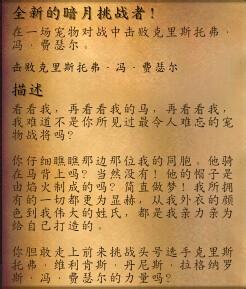 全新的暗月挑战者！
在一场宠物对战中击败克里斯托弗·
冯·费瑟尔。
击败克里斯托弗·冯·费瑟尔
描述
看看我，再看看我的马，再看看我，
我难道不是你所见过最令人难忘的宠
物战将吗？
你仔细瞧瞧那边那位我的同胞。他骑
在马背上吗？当然没有！他的帽子是
由焰火制成的吗？简直做梦！我所拥
有的一切都更为显赫，从我外衣的颜
色到我伟大的姓氏，都是我亲力亲为
给自己打造的。
你胆敢走上前来挑战头号选手克里斯
托弗·维利肯斯·丹尼斯·拉格纳罗
斯·冯·费瑟尔的力量吗？